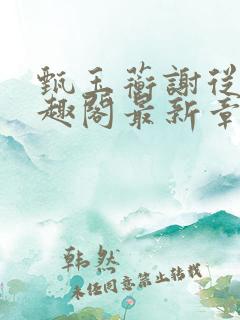 甄玉蘅謝從
趣閣最新章
韩然
未经同意禁止转载